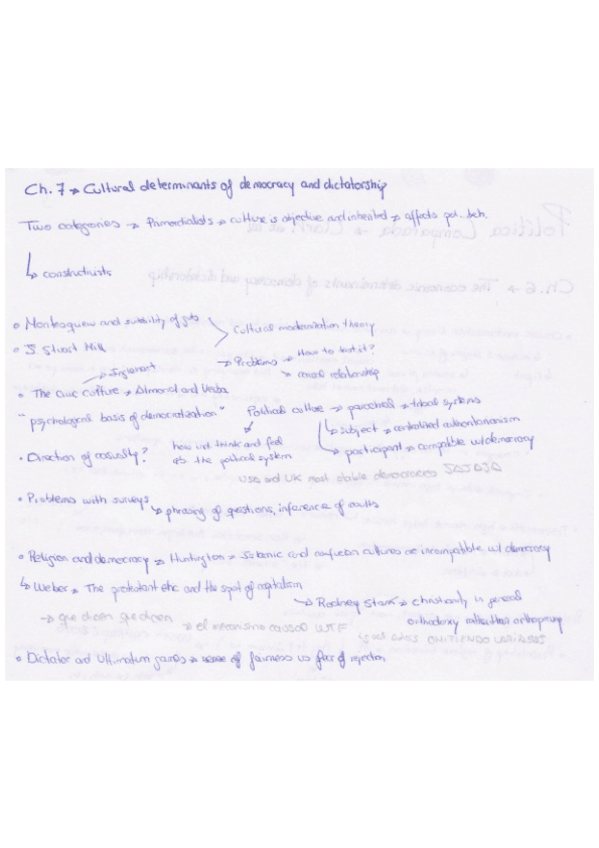 Ch. 7 → Cultural determinants of democracy and dictatorship
Two categories → Primordialists → culture is objective and inherited → affects pol. beh.
↳ constructivists
• Montesquieu and suitability of gvts
Cultural modernization theory
• J. Stuart Mill
→ Problems → How to test it?
↘ causal relationship
↗ Inglehart
• The Civic Culture → Almond and Verba
"psychological basis of democratization"
Political culture → parochial → tribal systems
↳ subject → centralized authoritarianism
↳ participant → compatible w/ democracy
how ind. think and feel
ab. the political system
• Direction of causality?
USA and UK most stable democracies JAJAJA
• Problems with surveys
↳ phrasing of questions, inference of
• Religion and democracy → Huntington → Islamic and confucian cultures are incompatible w/ democracy
↳ Weber → The protestant ethic and the spirit of capitalism
→ Rodney Stark → christianity in general
orthodoxy rather than orthopraxy
→ que dicen que dicen → el mecanismo causal WTF
OMITIENDO VARIABLES
• Dictator and Ultimatum games → of fairness vs fear of rejection